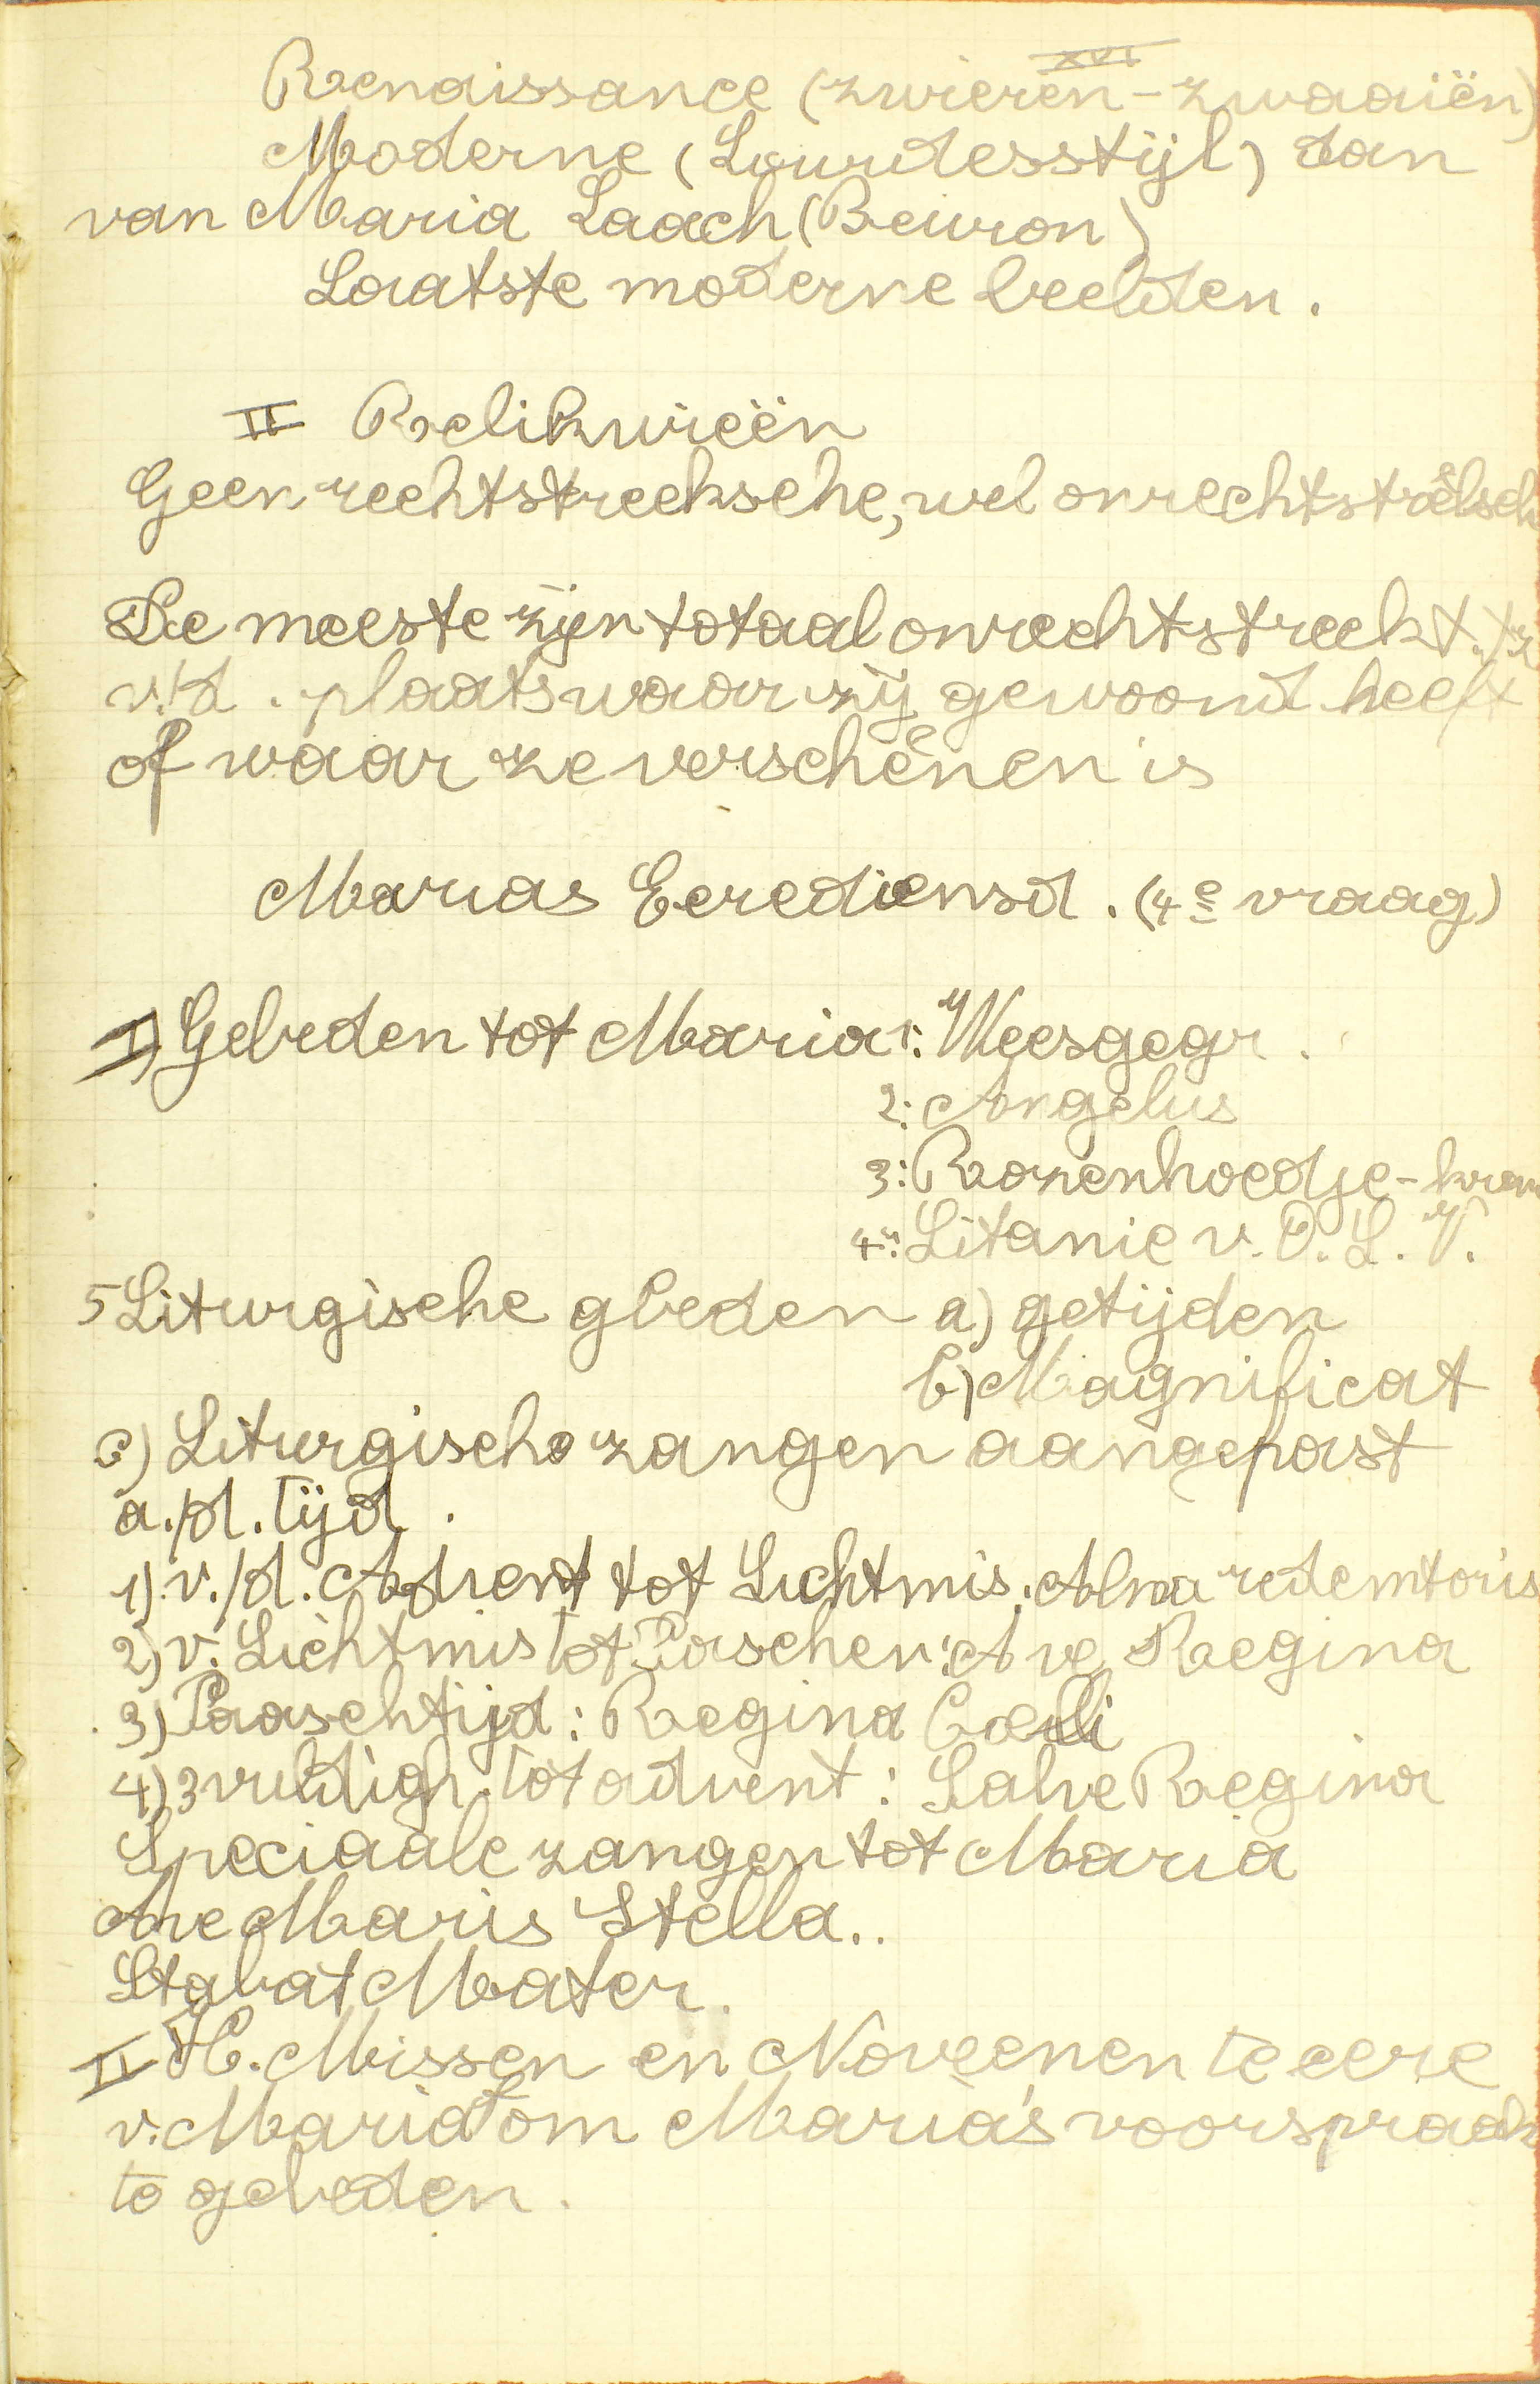 XVI
Renaissance (zwieren-zwaaiën)
Moderne (Lourdesstijl) dan
van Maria Laach (Beuron)
Laatste moderne beelden.
II Relikwieën
Geen rechtstreeksche, wel onrechtstreêksch
De meeste zijn totaal onrechtstreekt.
v./d. plaats waar zij gewoond heeft
of waar ze verschenen is
Marias Eerediensd. (4e vraag)
I) Gebeden tot Maria 1: Weesgegr.
2: Angelus
3: Rozenhoedje-kran
4: Litanie v. O. L. V.
5 Liturgische gbeden a) getijden
b) Magnificat
c) Liturgische zangen aangepast
a./d. tijd.
1) v./d. Advent tot Lichtmis: Alma redemtoris
2) v. Lichtmis tot Paschen: Ave Regina
3) Paaschtijd: Regina Coeli
4) 3vuldigh. tot advent: Salve Regina
Speciaale zangen tot Maria
Ave Maris Stella..
Stabat Mater.
II H. Missen en Noveenen te eere
v. Maria of om Maria's voorspraak
te gebeden.